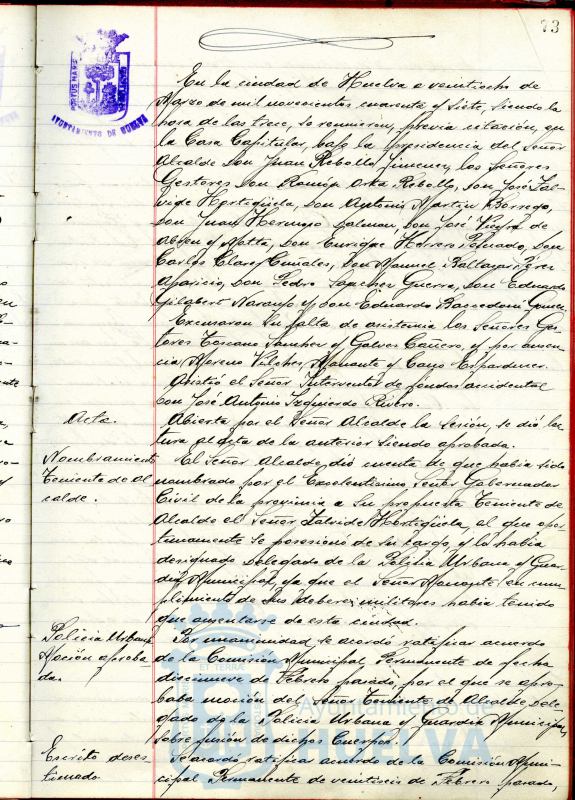 73
PORTUS MARIS
AYUNTAMIENTO DE HUELVA
En la ciudad de Huelva a veintiocho de
Marzo de mil novecientos cuarenta y siete, siendo la
hora de las trece, se reunieron, previa citación, en
la Casa Capitular, bajo la presidencia del Señor
Alcalde Don Juan Rebollo Jimenez, los Señores
Gestores Don Ramón Orta Rebollo, Don José Zal-
vide Hortigüela, Don Antonio Martin Borrego,
Don Juan Hermoso Dalman, Don José Vieyra de
Abreu y Motta, Don Enrique Herrero Peinado, Don
Carlos Clarés Cuñales, Don Manuel Baltasar Pérez
Aparicio, Don Pedro Sanchez Guerra, Don Eduardo
Gilabert Naranjo y Don Eduardo Barcedoni
Excusaron su falta de asistencia los Señores Ges-
tores Toscano Sanchez y Galvez Cañero, y por ausen-
cia, Moreno Vilches, Manante y Cano
Asistió el Señor Interventor de fondos accidental
Don José Antonio Izquierdo Rivero.
Acta.
Abierta por el Señor Alcalde la Sesión, se dió lec-
tura al acta de la anterior siendo aprobada.
Nombramiento
Teniente de Al
calde.
El Señor Alcalde dió cuenta de que había sido
nombrado por el Excelentisimo Señor Gobernador
Civil de la provincia a su propuesta Teniente de
Alcalde el Señor Zalvide Hortigüela, al que opor-
tunamente se posesionó de su cargo, y le había
designado Delegado de la Policia Urbana y Guar-
dia Municipal, ya que el Señor Manante en cum-
plimiento de sus deberes militares habia tenido
que ausentarse de esta ciudad.
Policia Urbana
Moción aproba
da.
Por unanimidad se acordó ratificar acuerdo
de la Comisión Municipal Permanente de fecha
diecinueve de Febrero pasado, por el que se apro-
baba moción del Señor Teniente de Alcalde Dele-
gado de la Policia Urbana y Guardia Municipal,
sobre fusión de dichos Cuerpos.
Escrito deses
timado
Se acordó ratificar acuerdo de la Comisión Muni-
cipal Permanente de veintiseis de Febrero pasado,
Ayuntamiento de
HUELVA